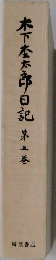 木下杢太郎日記
第五巻
岩波書店